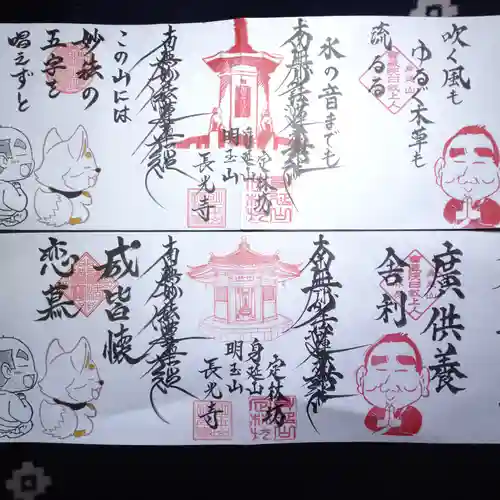 吹く風も
ゆるぐ木草も
流るる
水の音までも
南無妙法蓮華経
身延山
定林坊
明玉山
長光寺
南無妙法蓮華経
この山には
妙法の
五字を
唱えずと
廣供養
舎利
南無妙法蓮華経
身延山
定林坊
明玉山
長光寺
南無妙法蓮華経
咸皆懐
恋慕